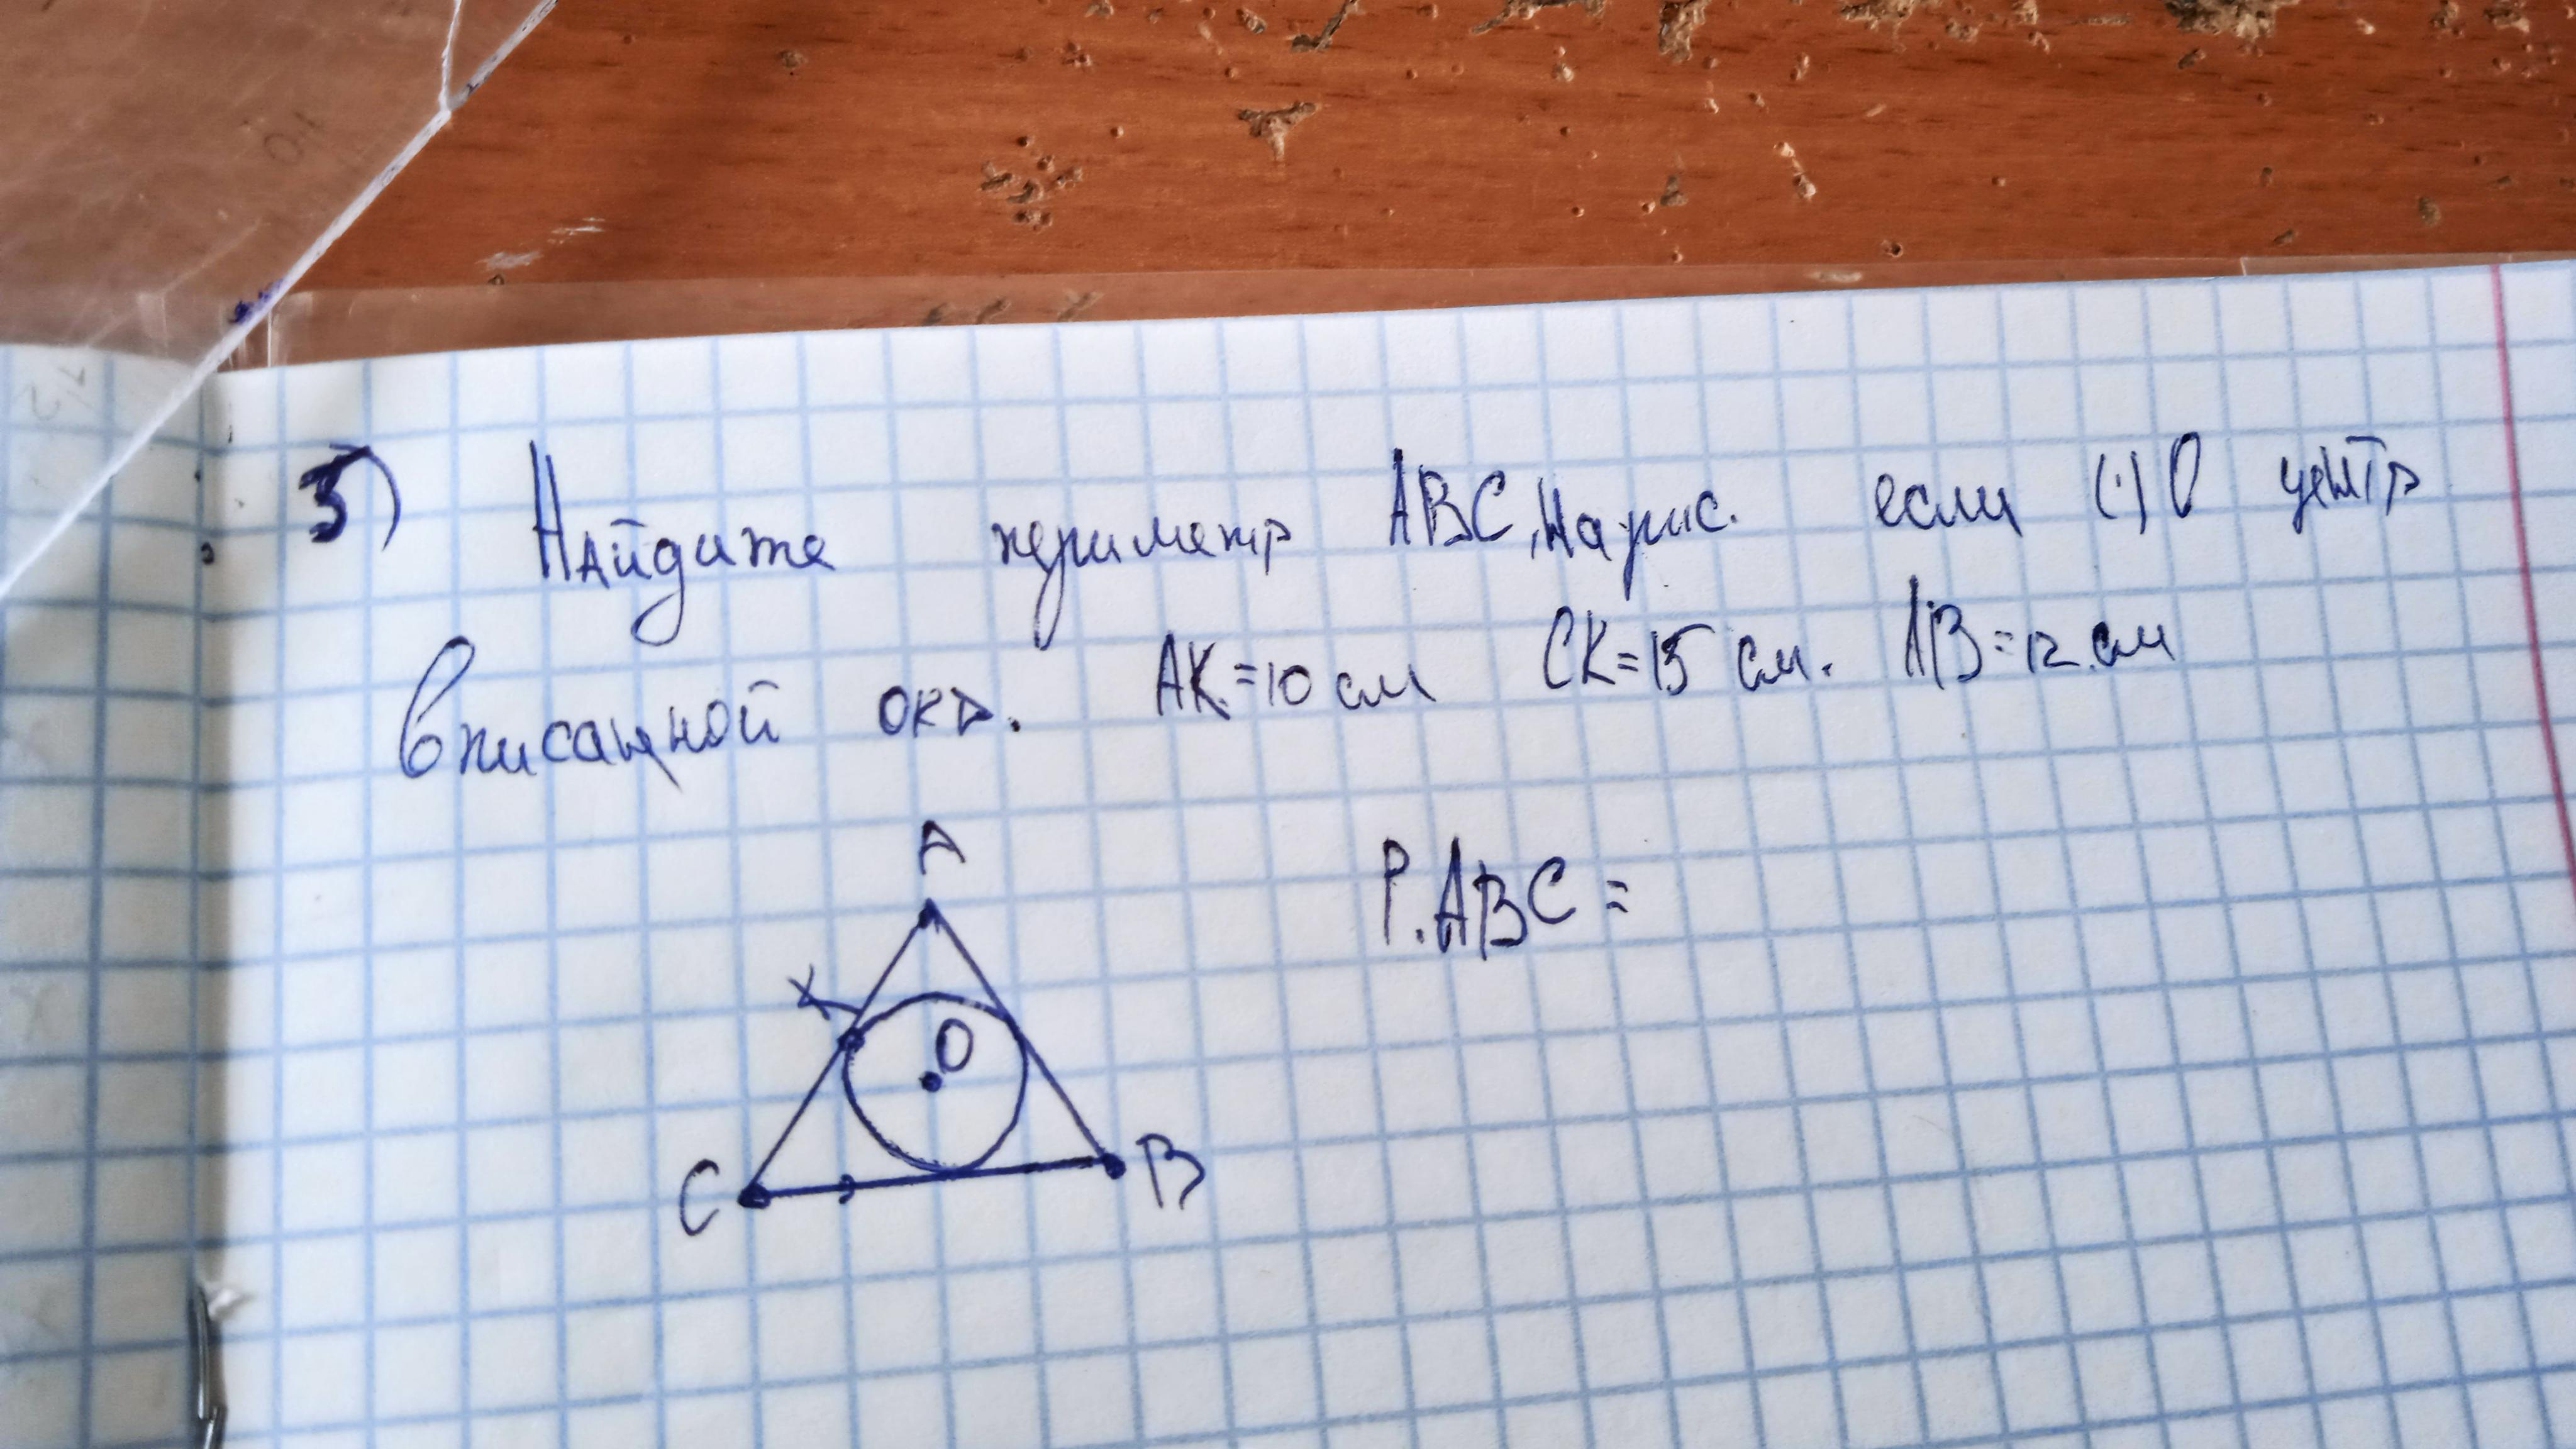 3) Найдите периметр ABC, на рис. если (·) O центр
вписанной окр. AK=10 см CK=15 см. AB=12 см
A
P.ABC =
K
O
C
B